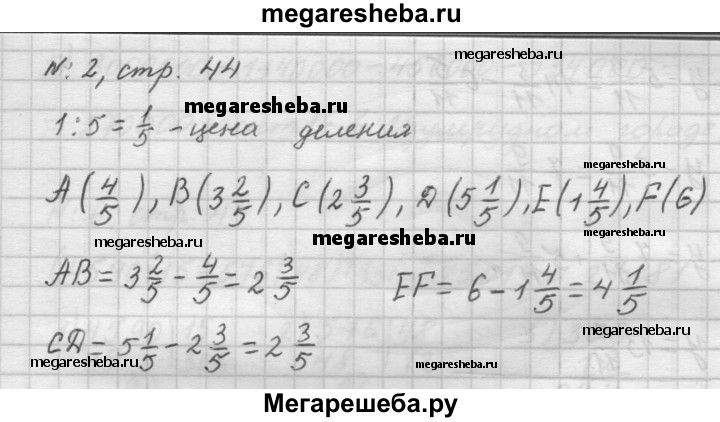 megaresheba.ru
№ 2, стр. 44
megaresheba.ru
megaresheba.ru
1:5 = 1/5 - цена деления
megaresheba.ru
A(4/5), B(3 2/5), C(2 3/5), D(5 1/5), E(1 4/5), F(6)
megaresheba.ru
megaresheba.ru
megaresheba.ru
AB = 3 2/5 - 4/5 = 2 3/5 EF = 6 - 1 4/5 = 4 1/5
megaresheba.ru
CD = 5 1/5 - 2 3/5 = 2 3/5
megaresheba.ru
megaresheba.ru
Мегарешеба.ру